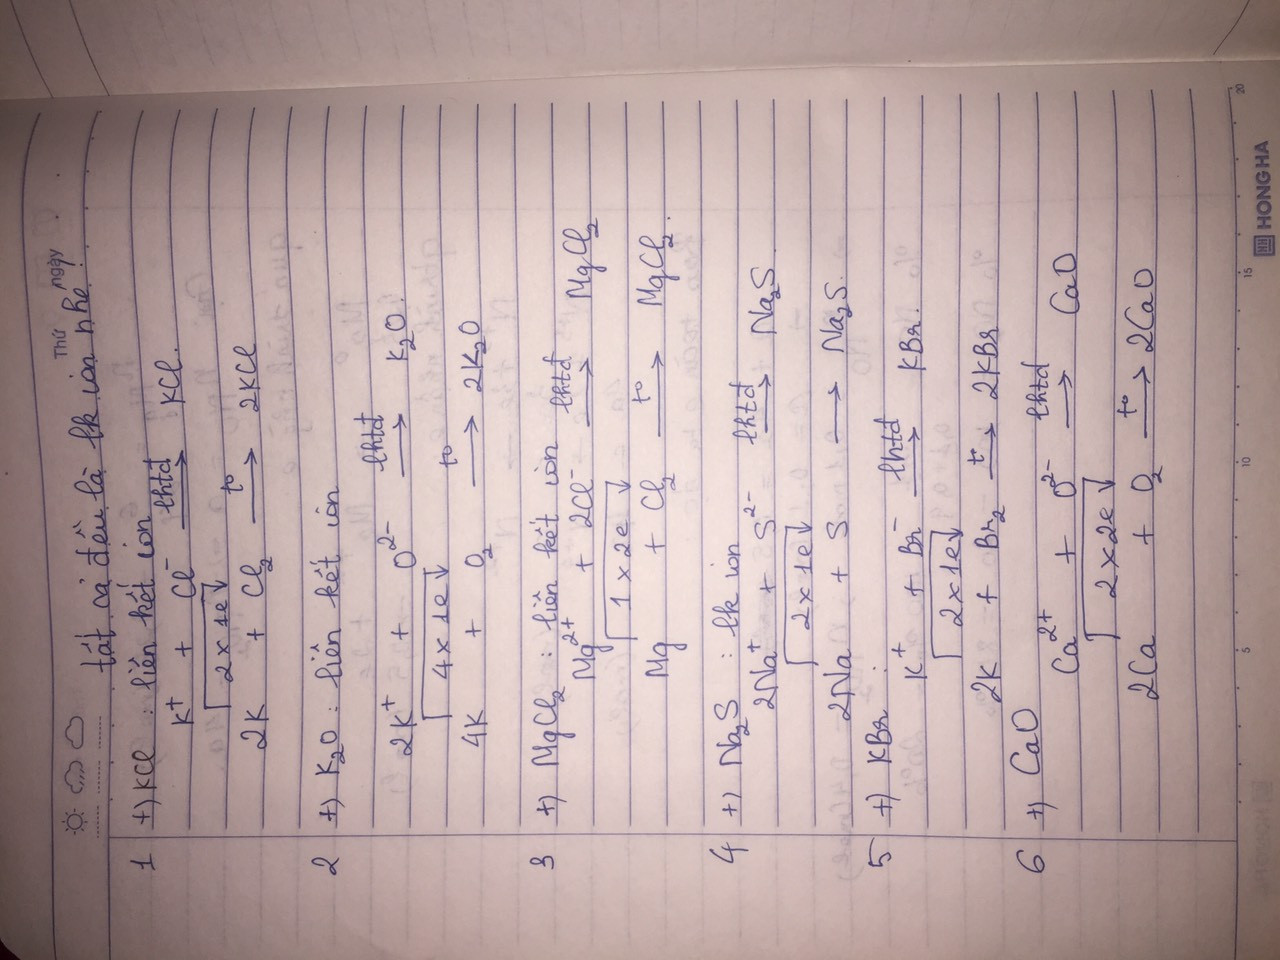 Thứ
Ngày
tất cả đều là lk ion nhé!
1 +) KCl : liên kết ion
K⁺ + Cl⁻ lhtđ → KCl.
2x1e
2K + Cl₂ t° → 2KCl
2 +) K₂O : liên kết ion
2K⁺ + O²⁻ lhtđ → K₂O.
4x1e
4K + O₂ t° → 2K₂O
3 +) MgCl₂ : liên kết ion
Mg²⁺ + 2Cl⁻ lhtđ → MgCl₂
1x2e
Mg + Cl₂ t° → MgCl₂.
4 +) Na₂S : lk ion
2Na⁺ + S²⁻ lhtđ → Na₂S
2x1e
2Na + S → Na₂S.
5 +) KBr :
K⁺ + Br⁻ lhtđ → KBr.
2x1e
2K + Br₂ t° → 2KBr
6 +) CaO
Ca²⁺ + O²⁻ lhtđ → CaO
2x2e
2Ca + O₂ t° → 2CaO
5 10 15 20
HH HONG HA